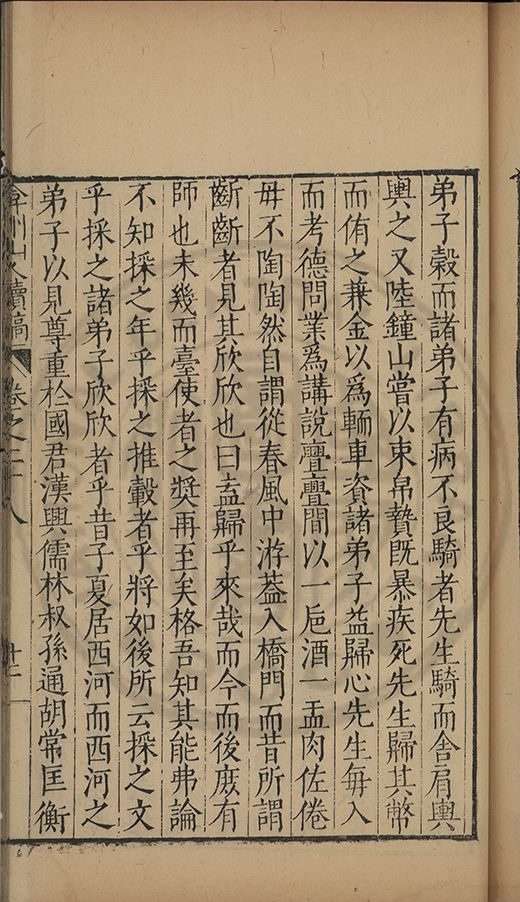 弟子穀而諸弟子有病不良騎者先生騎而舍肩輿
輿之又陸鐘山嘗以束帛贄既暴疾死先生歸其幣
而侑之兼金以為輀車資諸弟子益歸心先生每入
而考德問業為講說亹亹間以一巵酒一盂肉佐倦
毋不陶陶然自謂從春風中游葢入橋門而昔所謂
齗齗者見其欣欣也曰盍歸乎來哉而今而後庶有
師也未幾而臺使者之獎再至矣格吾知其能弗論
不知採之年乎採之推轂者乎將如後所云採之文
乎採之諸弟子欣欣者乎昔子夏居西河而西河之
弟子以見尊重於國君漢興儒林叔孫通胡常匡衡
弇州山人續稿 卷之二十八 廿二